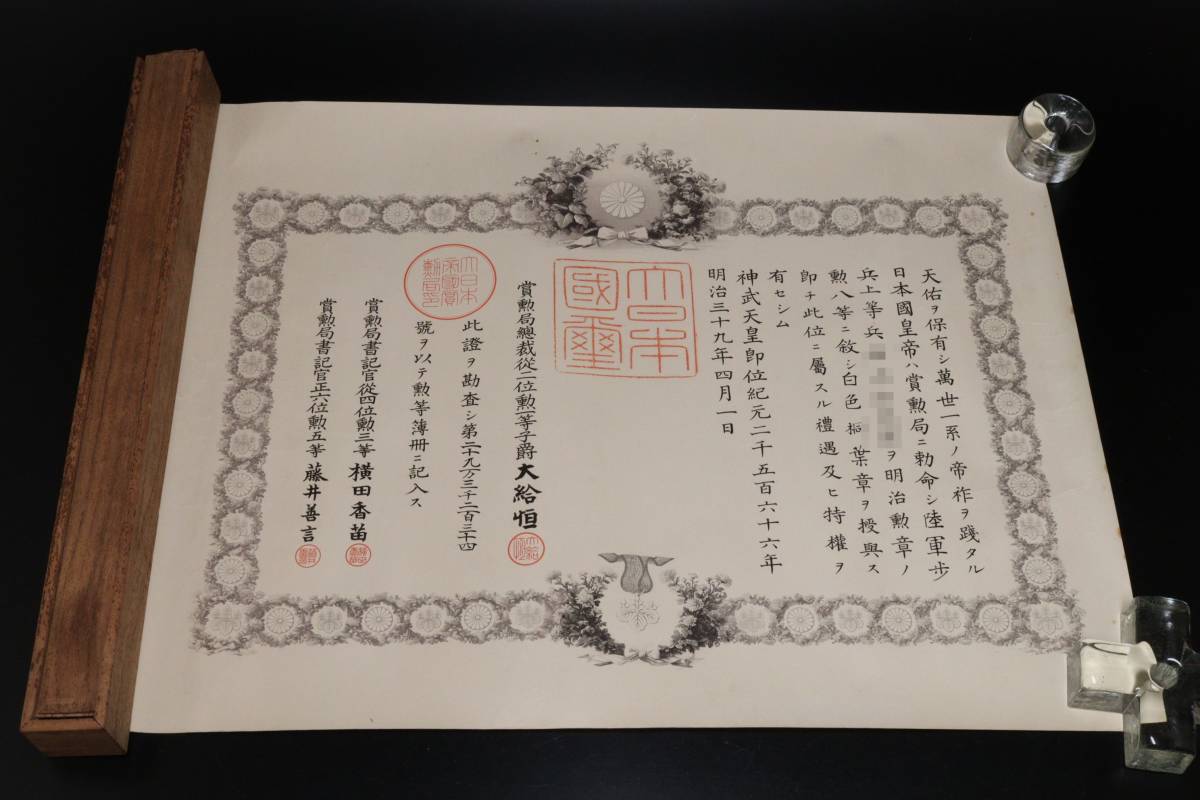 天佑ヲ保有シ萬世一系ノ帝祚ヲ踐タル
日本國皇帝ハ賞勲局ニ勅命シ陸軍步
兵上等兵 ヲ明治勲章ノ
勲八等ニ敘シ白色桐葉章ヲ授與ス
即チ此位ニ屬スル禮遇及ヒ特權ヲ
有セシム
神武天皇即位紀元二千五百六十六年
明治三十九年四月一日
大日本
國璽
賞勲局總裁從二位勲一等子爵大給恒
此證ヲ勘査シ第二十九万三千二百三十四
號ヲ以テ勲等簿冊ニ記入ス
大日本
帝國賞
勲局印
賞勲局書記官從四位勲三等橫田香苗
賞勲局書記官正六位勲五等藤井善言